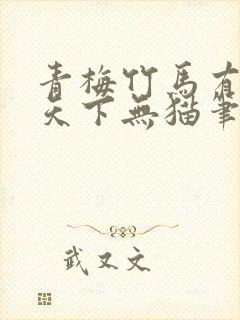 青梅竹馬有
天下無猫筆
武又文